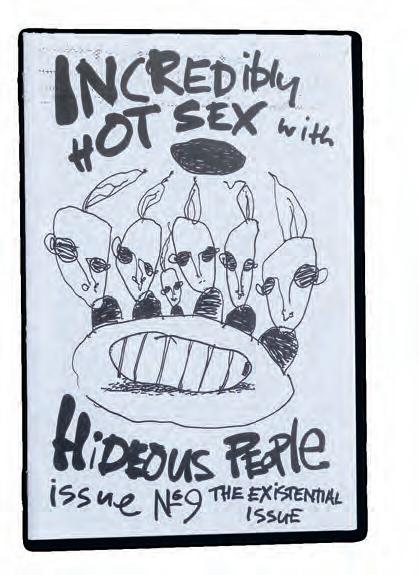 INCREDibly
HOT SEX with
HiDEOUS PEOPlE
issue Nº9 THE EXISTENTIAL
ISSUE